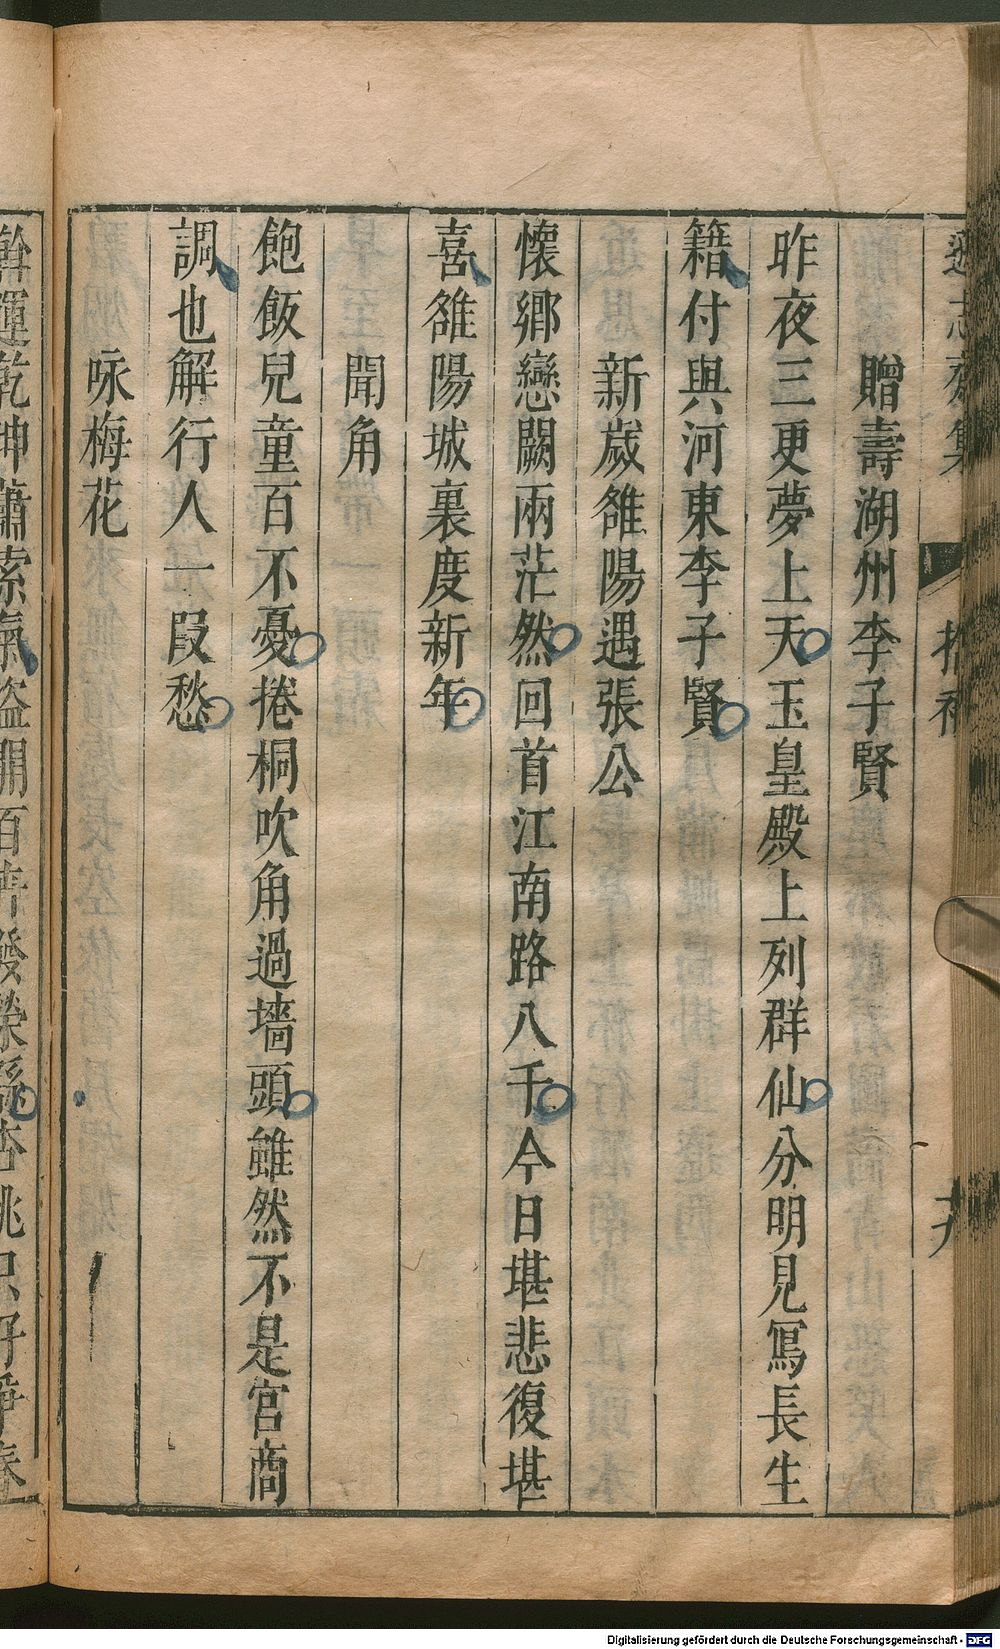 遜志齋集 拾補
贈壽湖州李子賢
昨夜三更夢上天玉皇殿上列群仙分明見寫長生
籍付與河東李子賢
新歲雒陽遇張公
懷鄉戀闕兩茫然回首江南路八千今日堪悲復堪
喜雒陽城裏度新年
聞角
飽飯兒童百不憂捲桐吹角過墻頭雖然不是宮商
調也解行人一段愁
咏梅花
斡運乾坤蕭索氣盗開百卉發榮繇杏桃只好爭春
Digitalisierung gefördert durch die Deutsche Forschungsgemeinschaft - DFG